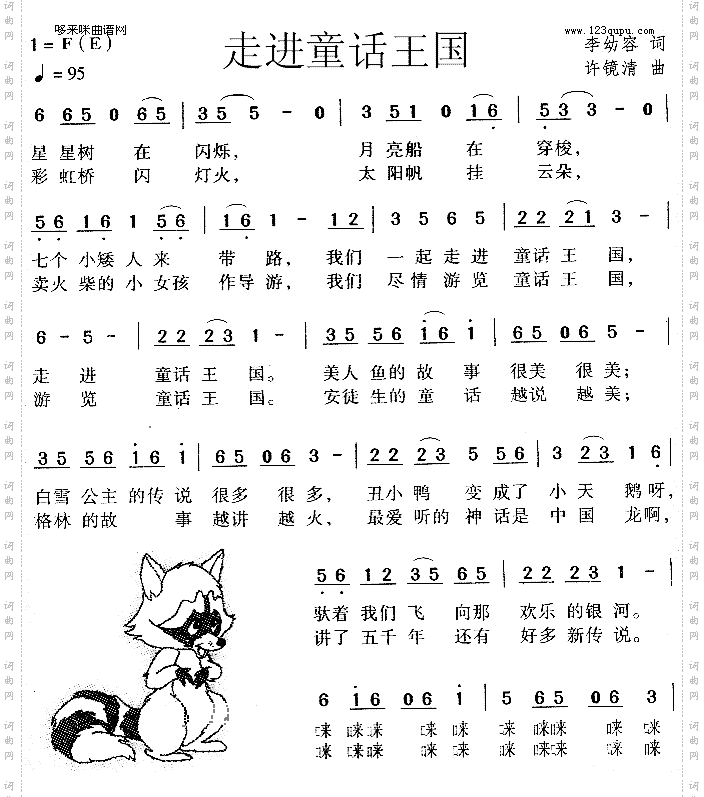 哆来咪曲谱网
www.123qupu.com
1=F(E)
走进童话王国
李幼容 词
♩=95
许镜清 曲
6 65 0 65 | 35 5 - 0 | 3 51 0 16 | 53 3 - 0 |
星 星树 在 闪烁, 月 亮船 在 穿梭,
彩 虹桥 闪 灯火, 太 阳帆 挂 云朵,
56 16 1 56 | 16 1 - 12 | 3 5 6 5 | 22 21 3 - |
七个 小矮 人 来 带 路, 我们 一 起 走 进 童话 王 国,
卖火 柴的 小 女孩 作导 游, 我们 尽 情 游 览 童话 王 国,
6 - 5 - | 22 23 1 - | 35 56 i6 i | 65 06 5 - |
走 进 童话 王 国。 美人 鱼的 故 事 很美 很 美;
游 览 童话 王 国。 安徒 生的 童 话 越说 越 美;
35 56 i6 i | 65 06 3 - | 22 23 5 56 | 3 23 1 6 |
白雪 公主 的传 说 很多 很 多, 丑小 鸭 变 成了 小 天 鹅 呀,
格林 的故 事 越讲 越 火, 最爱 听的 神 话是 中 国 龙 啊,
56 12 35 65 | 22 23 1 - |
驮着 我们 飞 向那 欢乐 的银 河。
讲了 五千 年 还有 好多 新传 说。
6 i6 06 i | 5 65 06 3 |
咪 咪咪 咪 咪 咪 咪咪 咪 咪
咪 咪咪 咪 咪 咪 咪咪 咪 咪
词曲网